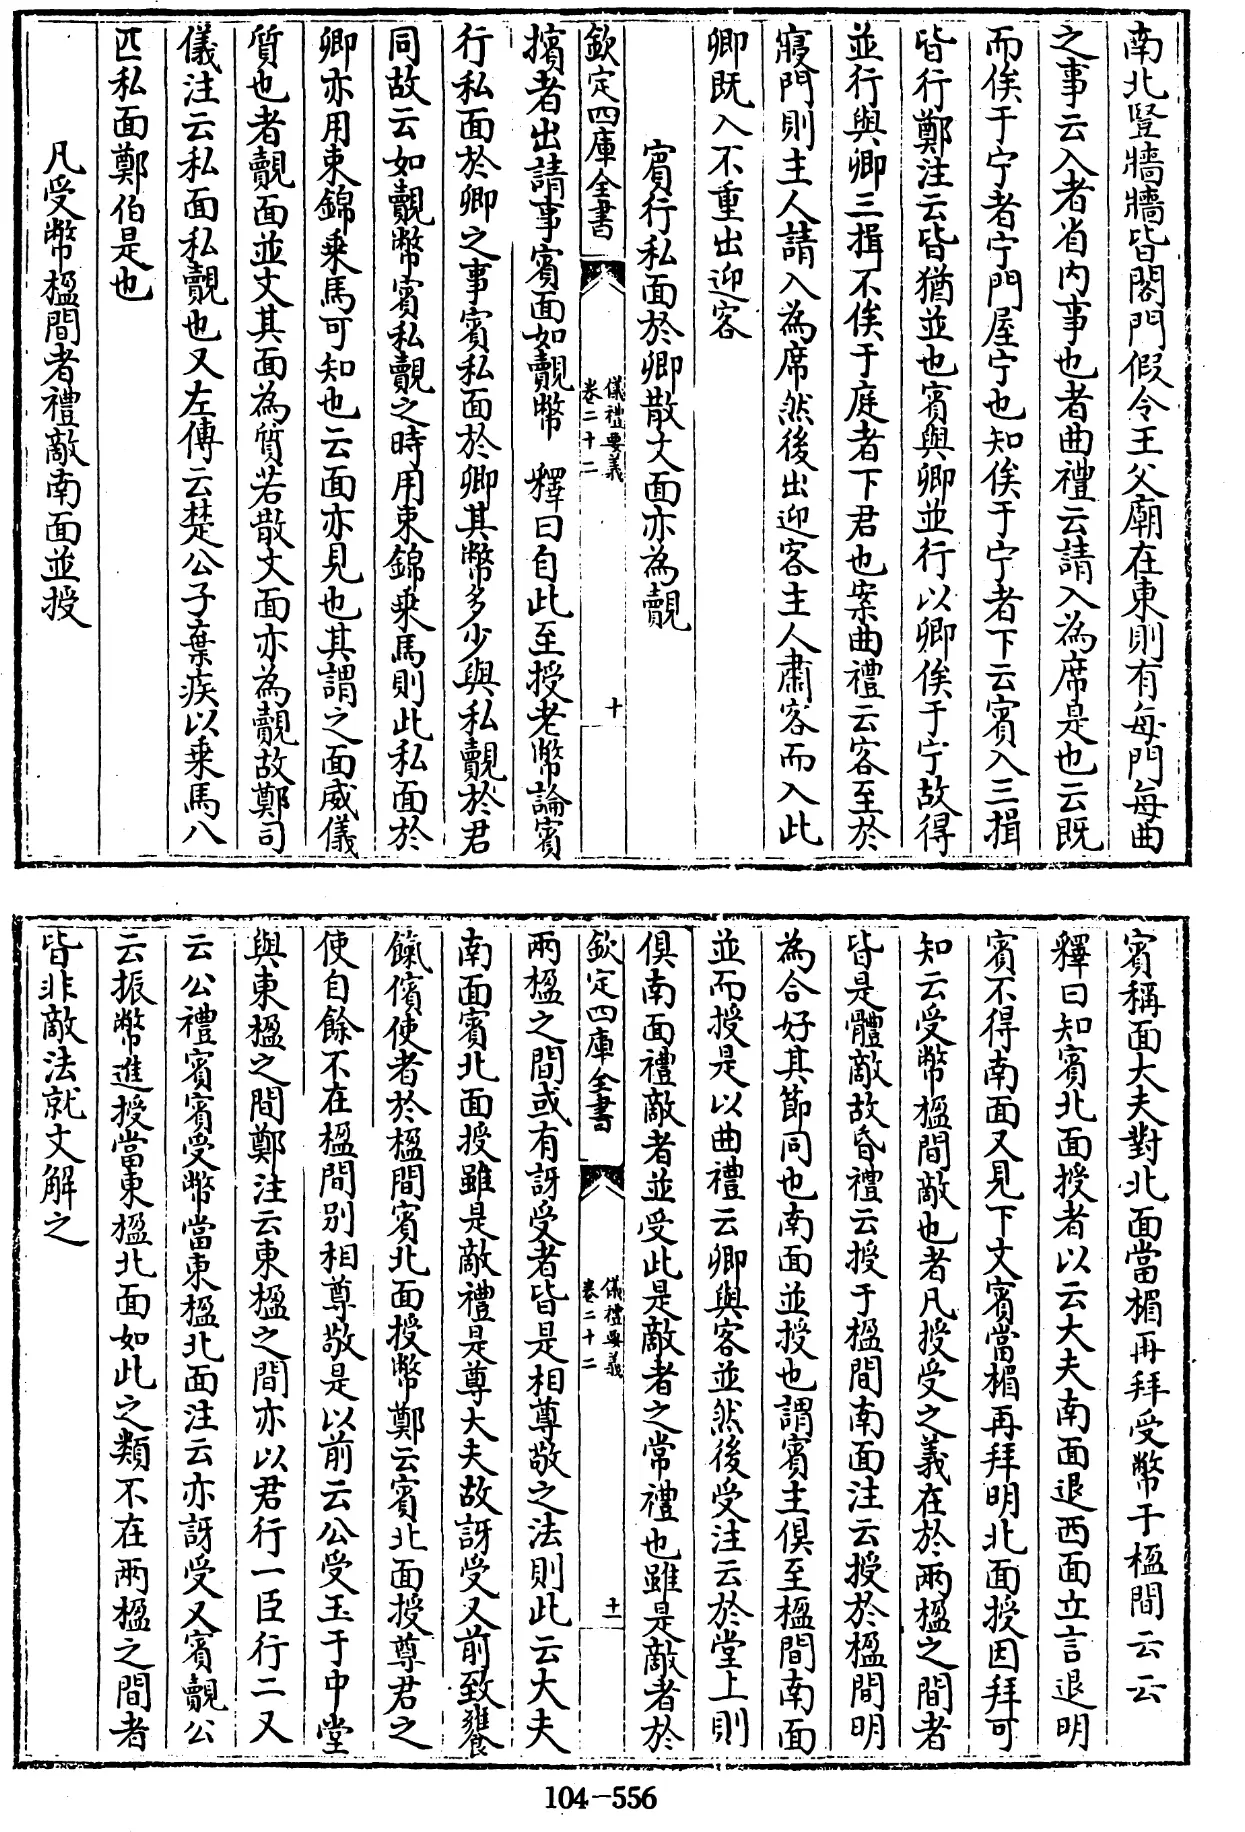 南北豎牆牆皆閤門假令王父廟在東則有每門每曲
之事云入者省内事也者曲禮云請入為席是也云既
而俟于宁者宁門屋宁也知俟于宁者下云賓入三揖
皆行鄭注云皆猶並也賓與卿並行以卿俟于宁故得
並行與卿三揖不俟于庭者下君也案曲禮云客至於
寢門則主人請入為席然後出迎客主人肅客而入此
卿既入不重出迎客
賓行私面於卿散文面亦為覿
欽定四庫全書
儀禮要義
卷二十二
十
擯者出請事賓面如覿幣 釋曰自此至授老幣論賓
行私面於卿之事賓私面於卿其幣多少與私覿於君
同故云如覿幣賓私覿之時用束錦乗馬則此私面於
卿亦用束錦乗馬可知也云面亦見也其謂之面威儀
質也者覿面並文其面為質若散文面亦為覿故鄭司
儀注云私面私覿也又左傳云楚公子棄疾以乗馬八
匹私面鄭伯是也
凡受幣楹間者禮敵南面並授
賓稱面大夫對北面當楣再拜受幣于楹間云云
釋曰知賓北面授者以云大夫南面退西面立言退明
賓不得南面又見下文賓當楣再拜明北面授因拜可
知云受幣楹間敵也者凡授受之義在於兩楹之間者
皆是體敵故昏禮云授于楹間南面注云授於楹間明
為合好其節同也南面並授也謂賓主俱至楹間南面
並而授是以曲禮云鄉與客並然後受注云於堂上則
俱南面禮敵者並受此是敵者之常禮也雖是敵者於
欽定四庫全書
儀禮要義
卷二十二
十一
兩楹之間或有訝受者皆是相尊敬之法則此云大夫
南面賓北面授雖是敵禮是尊大夫故訝受又前致饔
餼儐使者於楹間賓北面授幣鄭云賓北面授尊君之
使自餘不在楹間别相尊敬是以前云公受玉于中堂
與東楹之間鄭注云東楹之間亦以君行一臣行二又
云公禮賓賓受幣當東楹北面注云亦訝受又賓覿公
云振幣進授當東楹北面如此之類不在兩楹之間者
皆非敵法就文解之
104-556